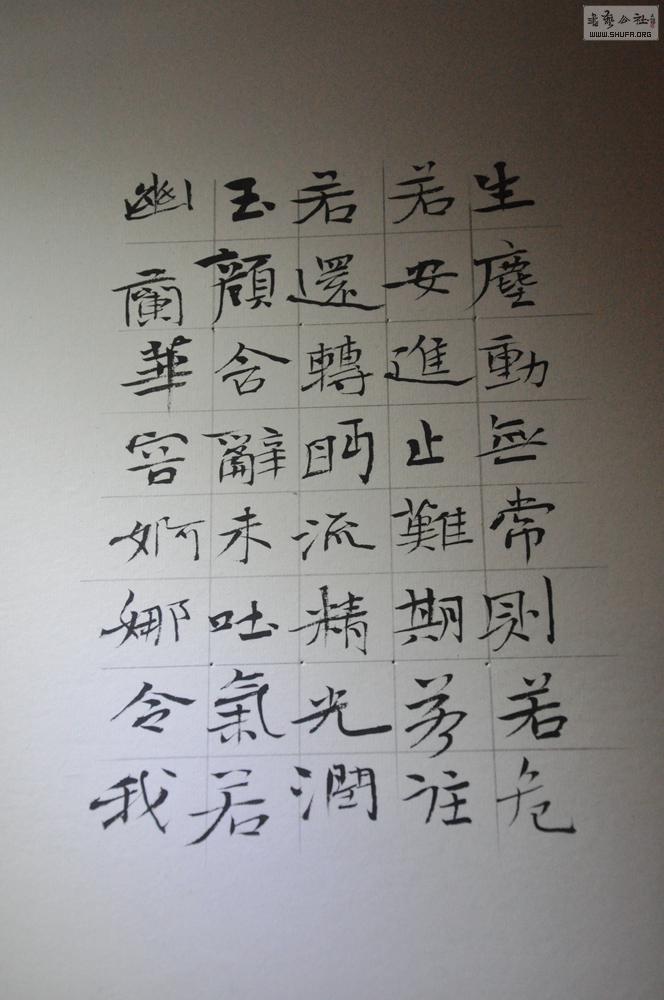 生塵動無常則若危
若安進止難期若往
若還轉眄流精光潤
玉顏含辭未吐氣若
幽蘭華容婀娜令我
書藝公社
WWW.SHUFA.ORG